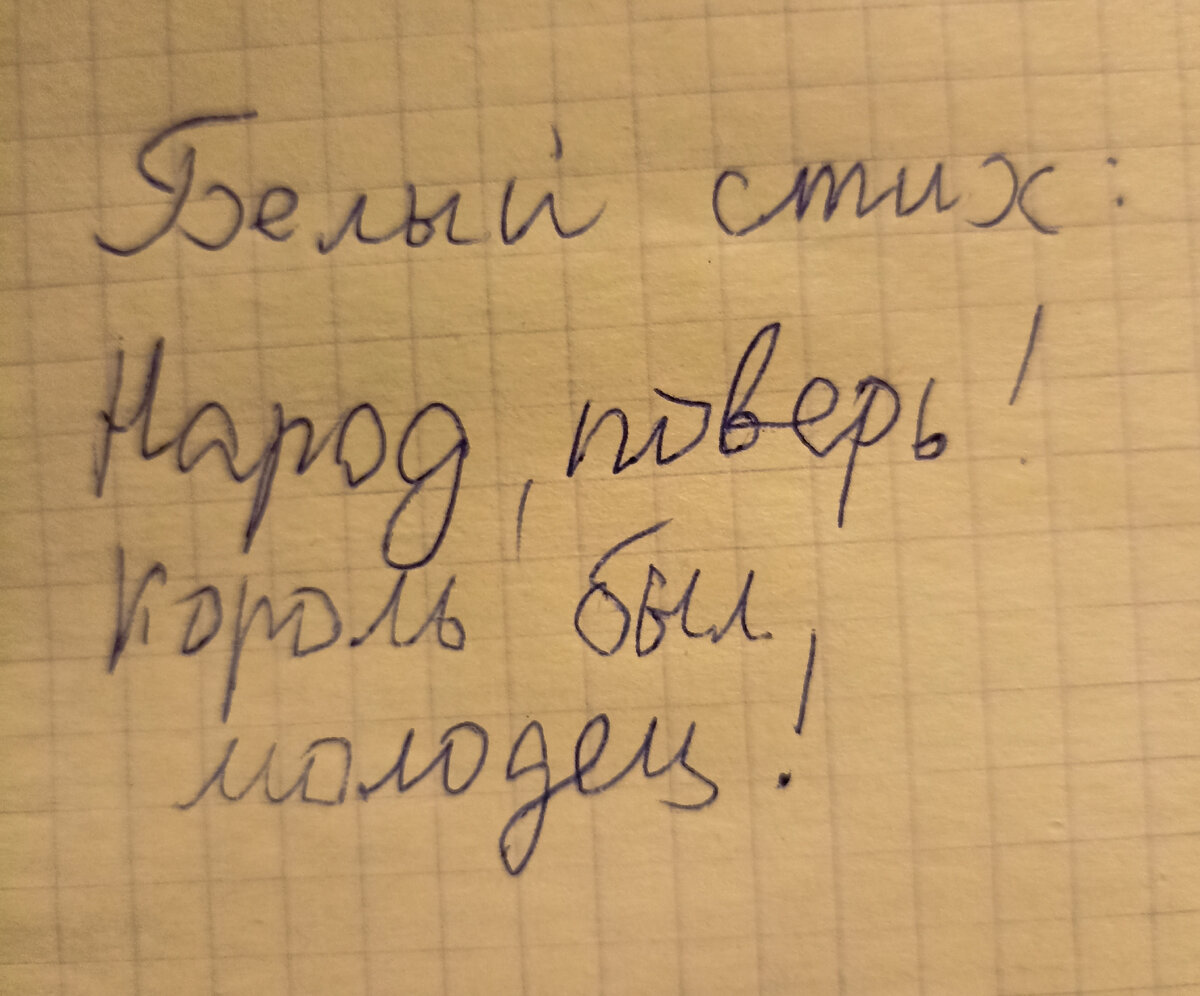 Белый стих:
Народ, поверь!
Король был
молодец!